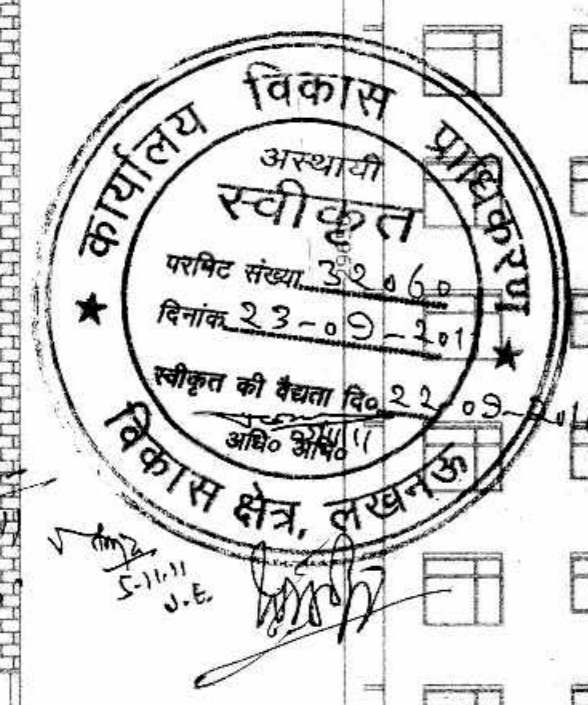 कार्यालय विकास प्राधिकरण
अस्थायी
स्वीकृत
परमिट संख्या 32060
दिनांक 23-09-201
स्वीकृत की वैद्यता दि० 22-09-201
अधि० अभि०
विकास क्षेत्र, लखनऊ
5-11-11
J.E.